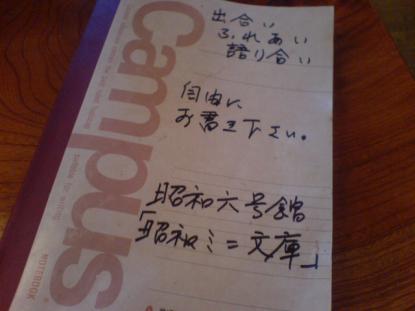 Campus
NOTEBOOK
出合い
ふれあい
語り合い
自由に
お書き下さい。
昭和六号館
「昭和ミニ文庫」